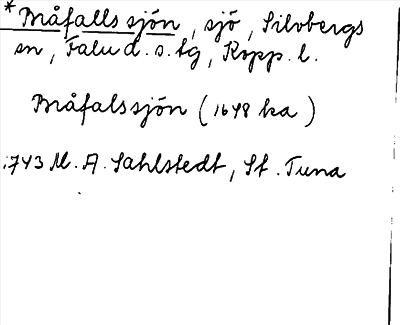 *Bråfallssjön, sjö, Silvbergs
sn, Falu d.s. tg, Kopp. l.
Bråfalssjön (1648 ka)
1743 M. A. Sahlstedt, St. Tuna